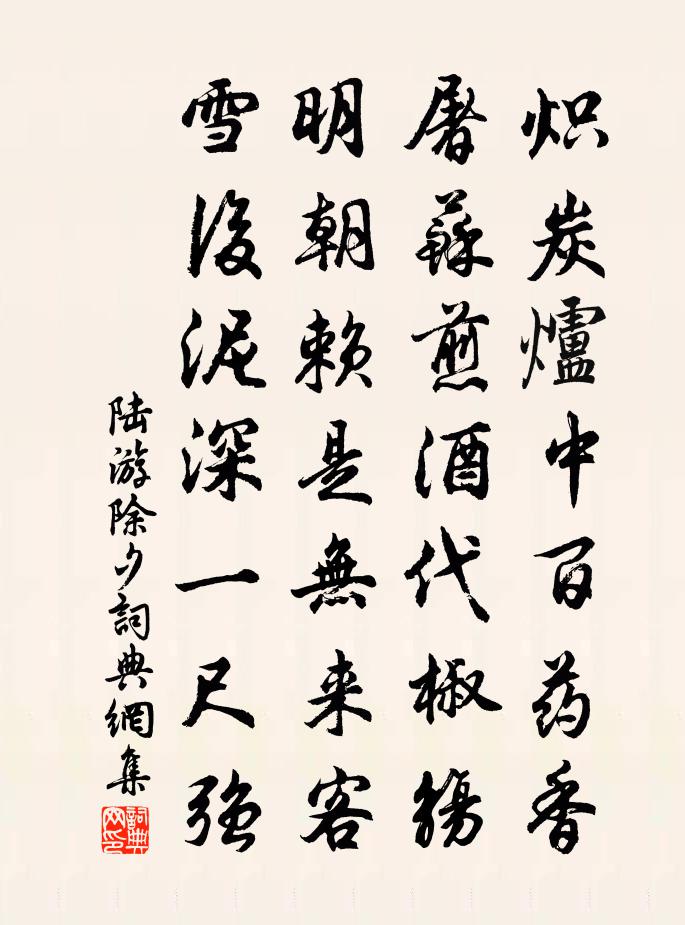 炽炭爐中百药香
屠蘇煎酒代椒觴
明朝赖是無来客
雪後泥深一尺强
陆游除夕詞典網集
詞典網印